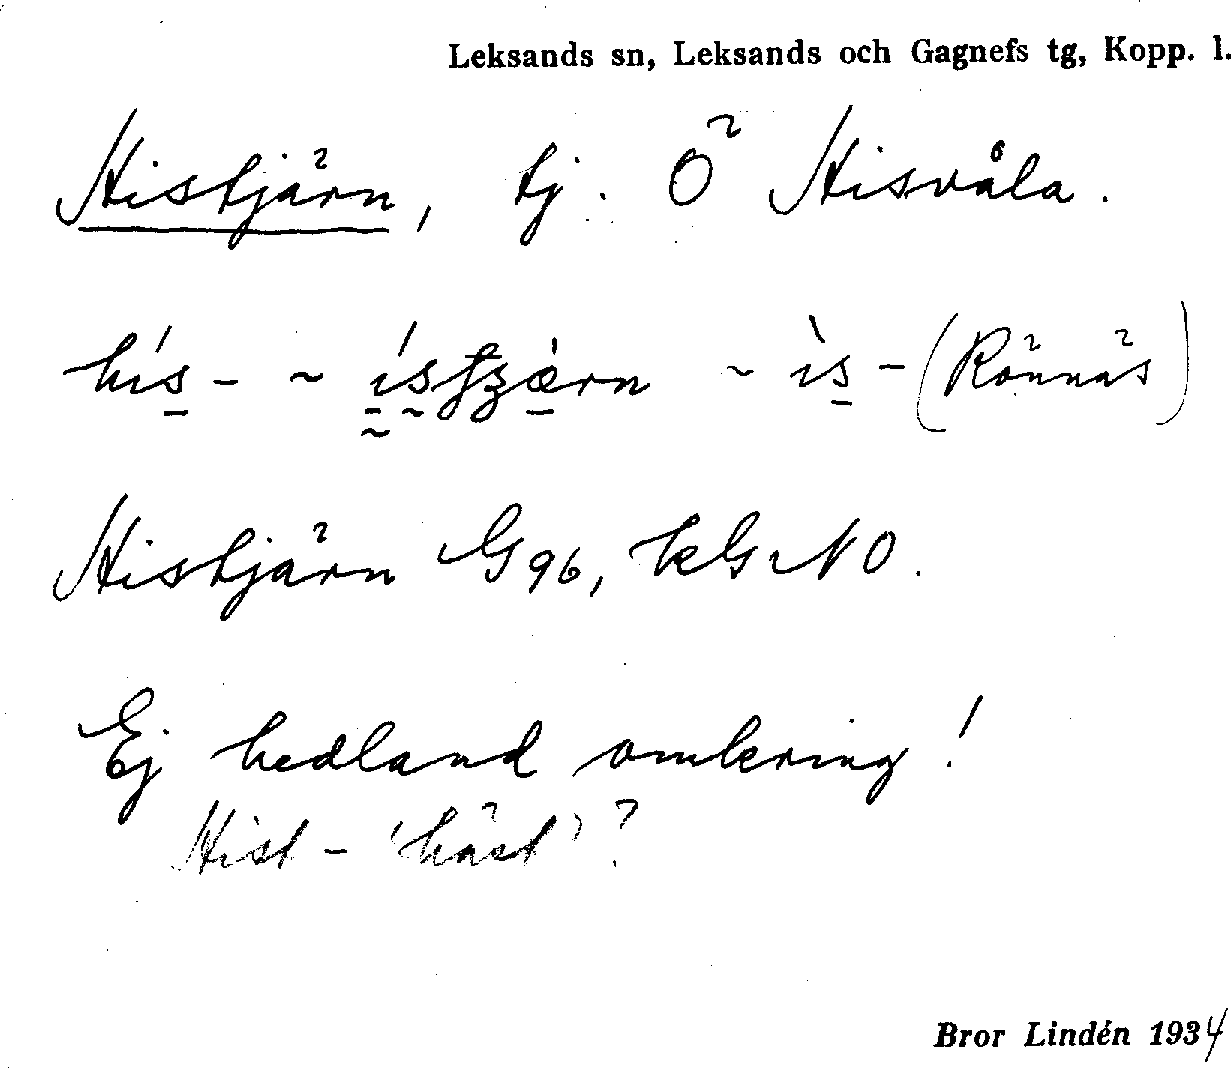 Leksands sn, Leksands och Gagnefs tg, Kopp. l.
Histjärn, tj. Ö Hisvåla.
hís- ~ ísfʒæ̀rn ~ ìs- (Rönnäs)
Histjärn G96, kG NO.
Ej hedland omkring!
Hist- 'häst'?
Bror Lindén 1934